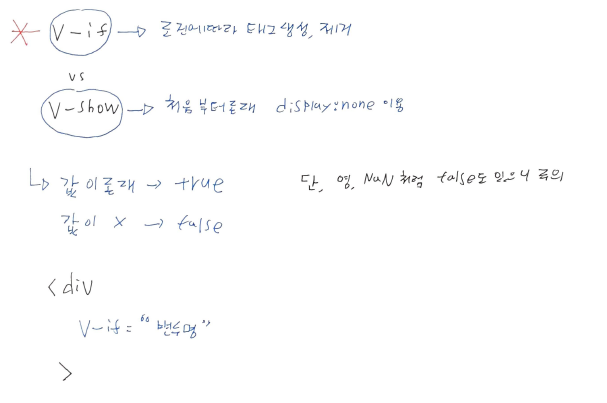 V-if → 조건에따라 태그생성, 제거
vs
V-show → 처음부터존재 display:none 이용
↳ 값이존재 → true
단, 영, NaN 처럼 false도 있으니 주의
값이 X → false
<div
V-if = "변수명"
>